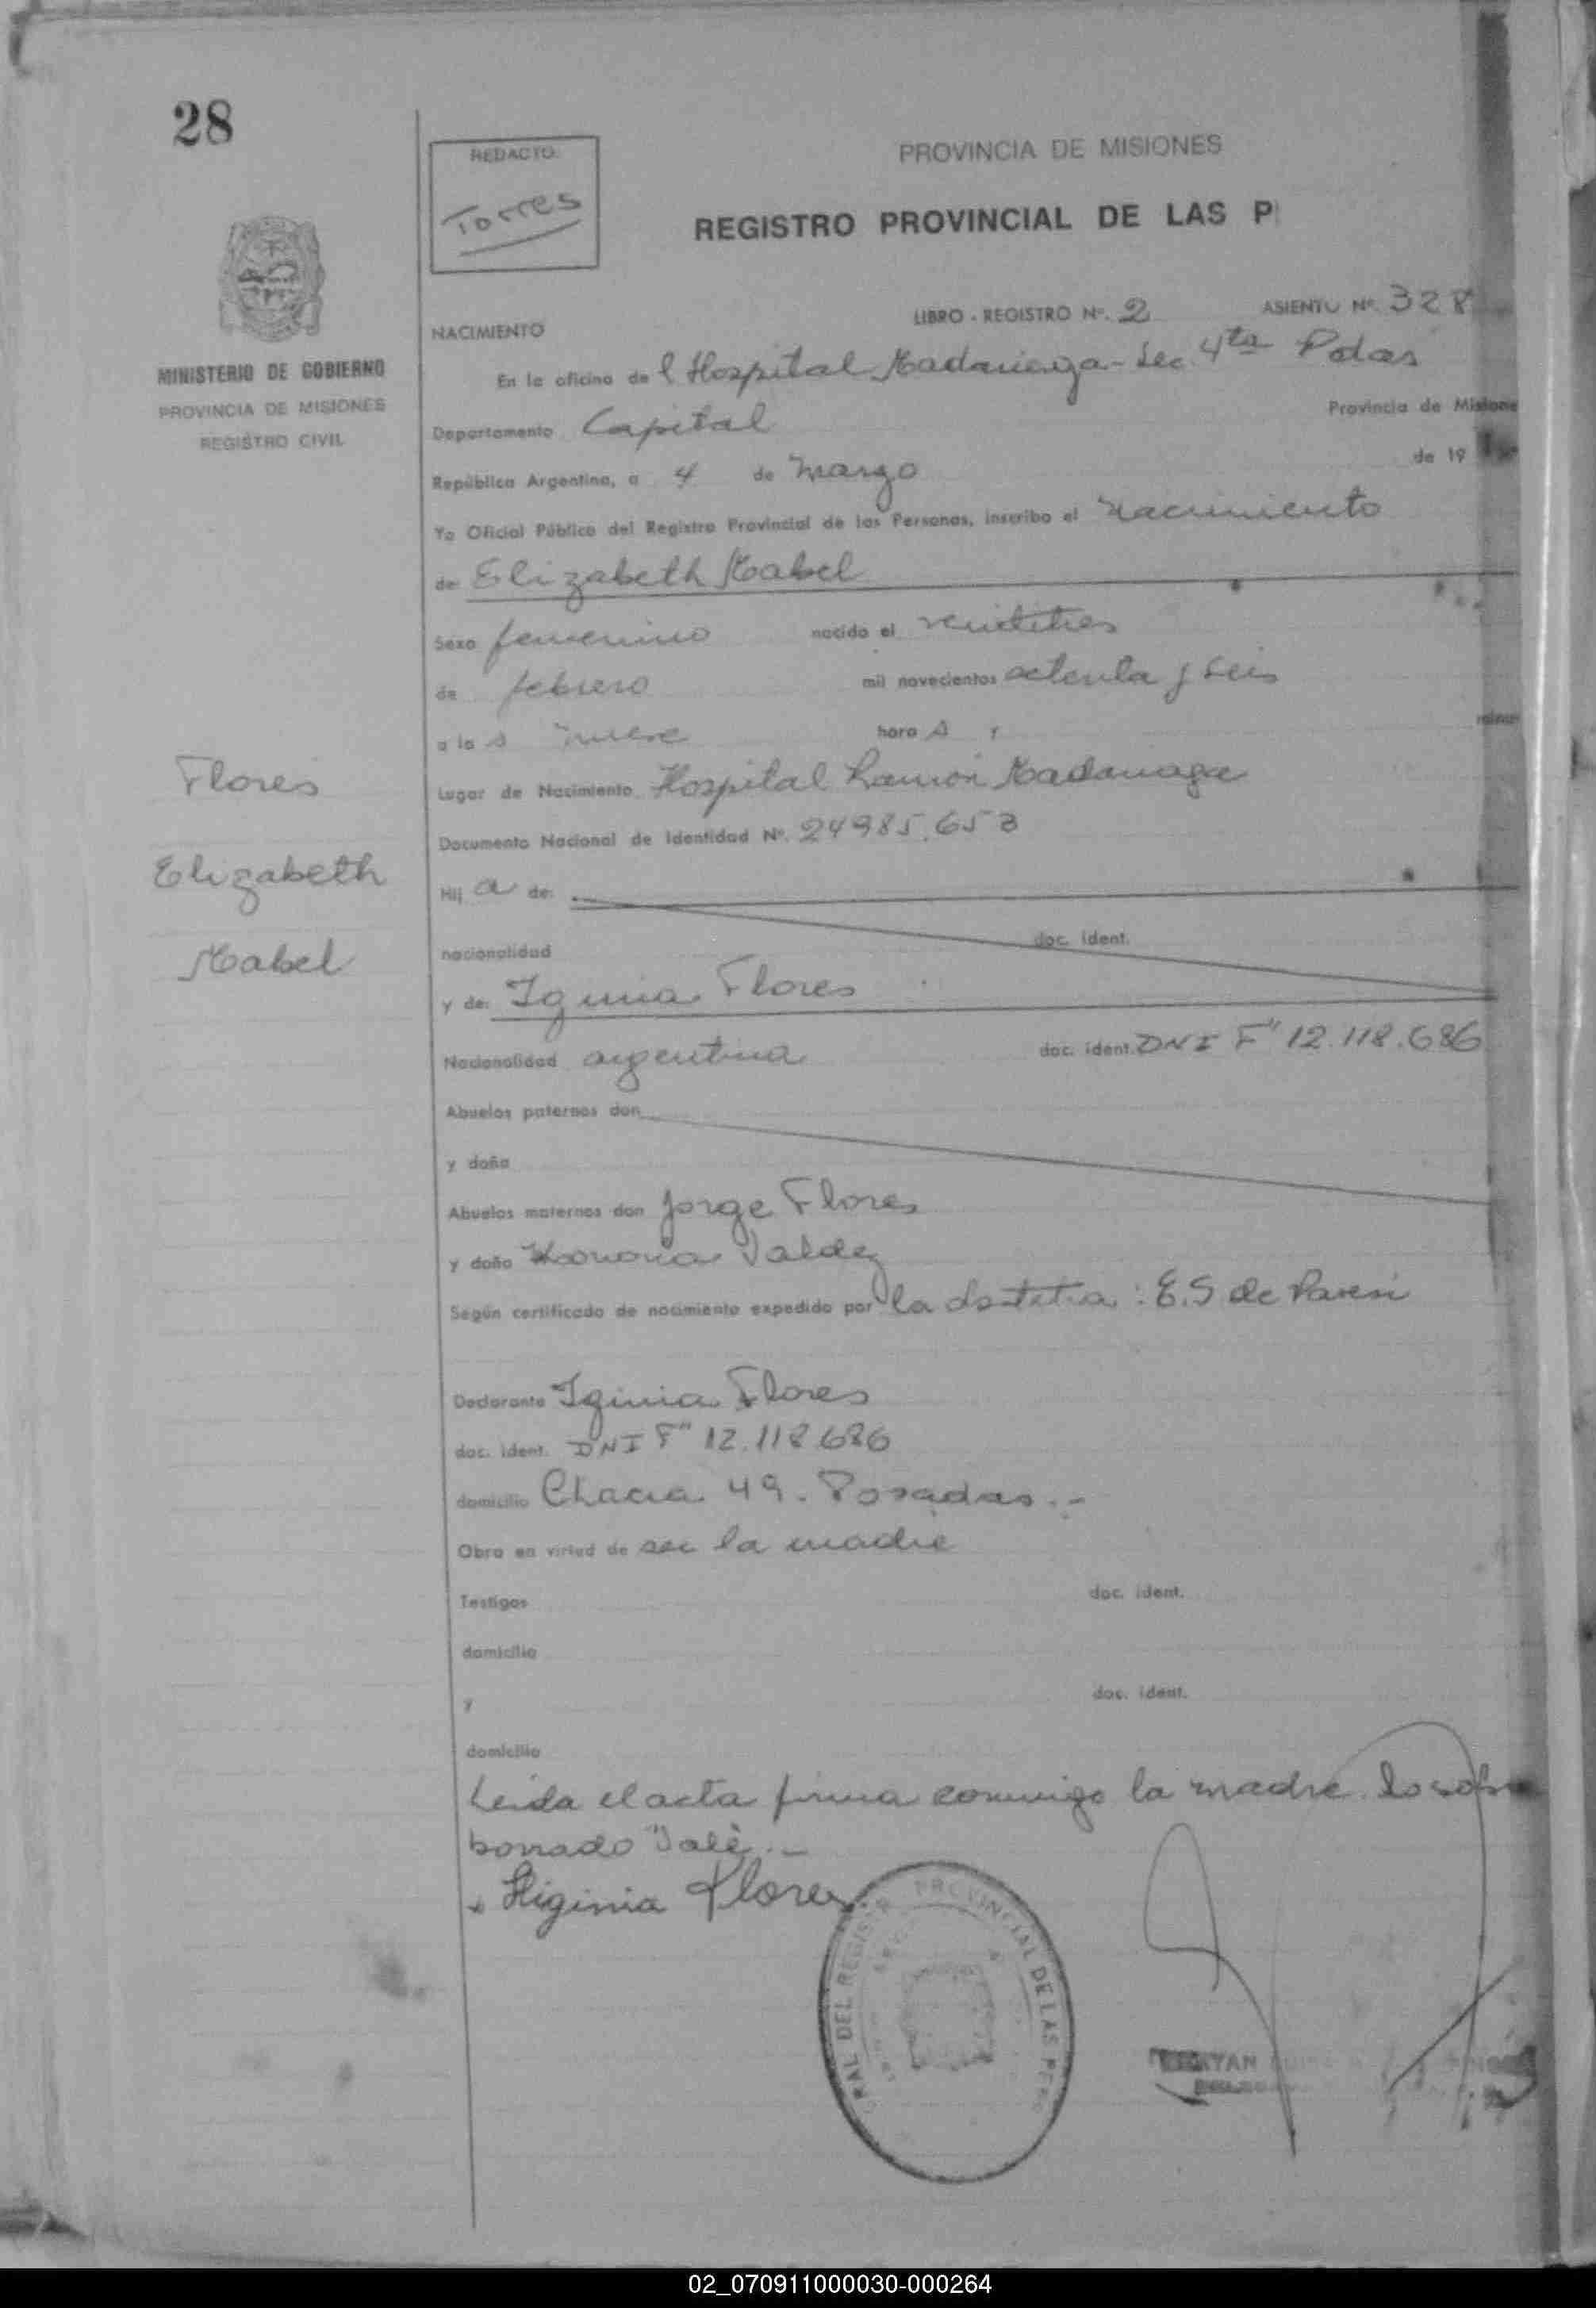 28
REDACTO:
Torres
PROVINCIA DE MISIONES
REGISTRO PROVINCIAL DE LAS P
MINISTERIO DE GOBIERNO
PROVINCIA DE MISIONES
REGISTRO CIVIL
NACIMIENTO
LIBRO - REGISTRO Nº. 2 ASIENTO Nº. 328
En la oficina de l Hospital Madariaga - Sec. 4ta Pdas
Departamento Capital Provincia de Misione
República Argentina, a 4 de marzo de 19
Yo Oficial Público del Registro Provincial de las Personas, inscribo el nacimiento
de Elizabeth Mabel
Sexo femenino nacido el veintitres
de febrero mil novecientos setenta y seis
a la s nueve hora s y
Flores
Elizabeth
Mabel
Lugar de Nacimiento Hospital Ramón Madariaga
Documento Nacional de Identidad Nº. 24985.653
Hij a de:
nacionalidad doc. ident.
y de: Iginia Flores
Nacionalidad argentina doc. ident. DNI F" 12.118.686
Abuelos paternos don
y doña
Abuelos maternos don Jorge Flores
y doña Honoria Valdez
Según certificado de nacimiento expedido por la obstetra: E.S de Paresi
Declarante Iginia Flores
doc. ident. DNI F" 12.118.686
domicilio Chacra 49. Posadas.-
Obra en virtud de ser la madre
Testigos doc. ident.
domicilio
y doc. ident.
domicilio
Leida el acta firma conmigo la madre. Lo sobre
borrado "Vale.-
x Higinia Flores
RAL DEL REGISTR PROVINCIAL DE LAS PERS
02_070911000030-000264